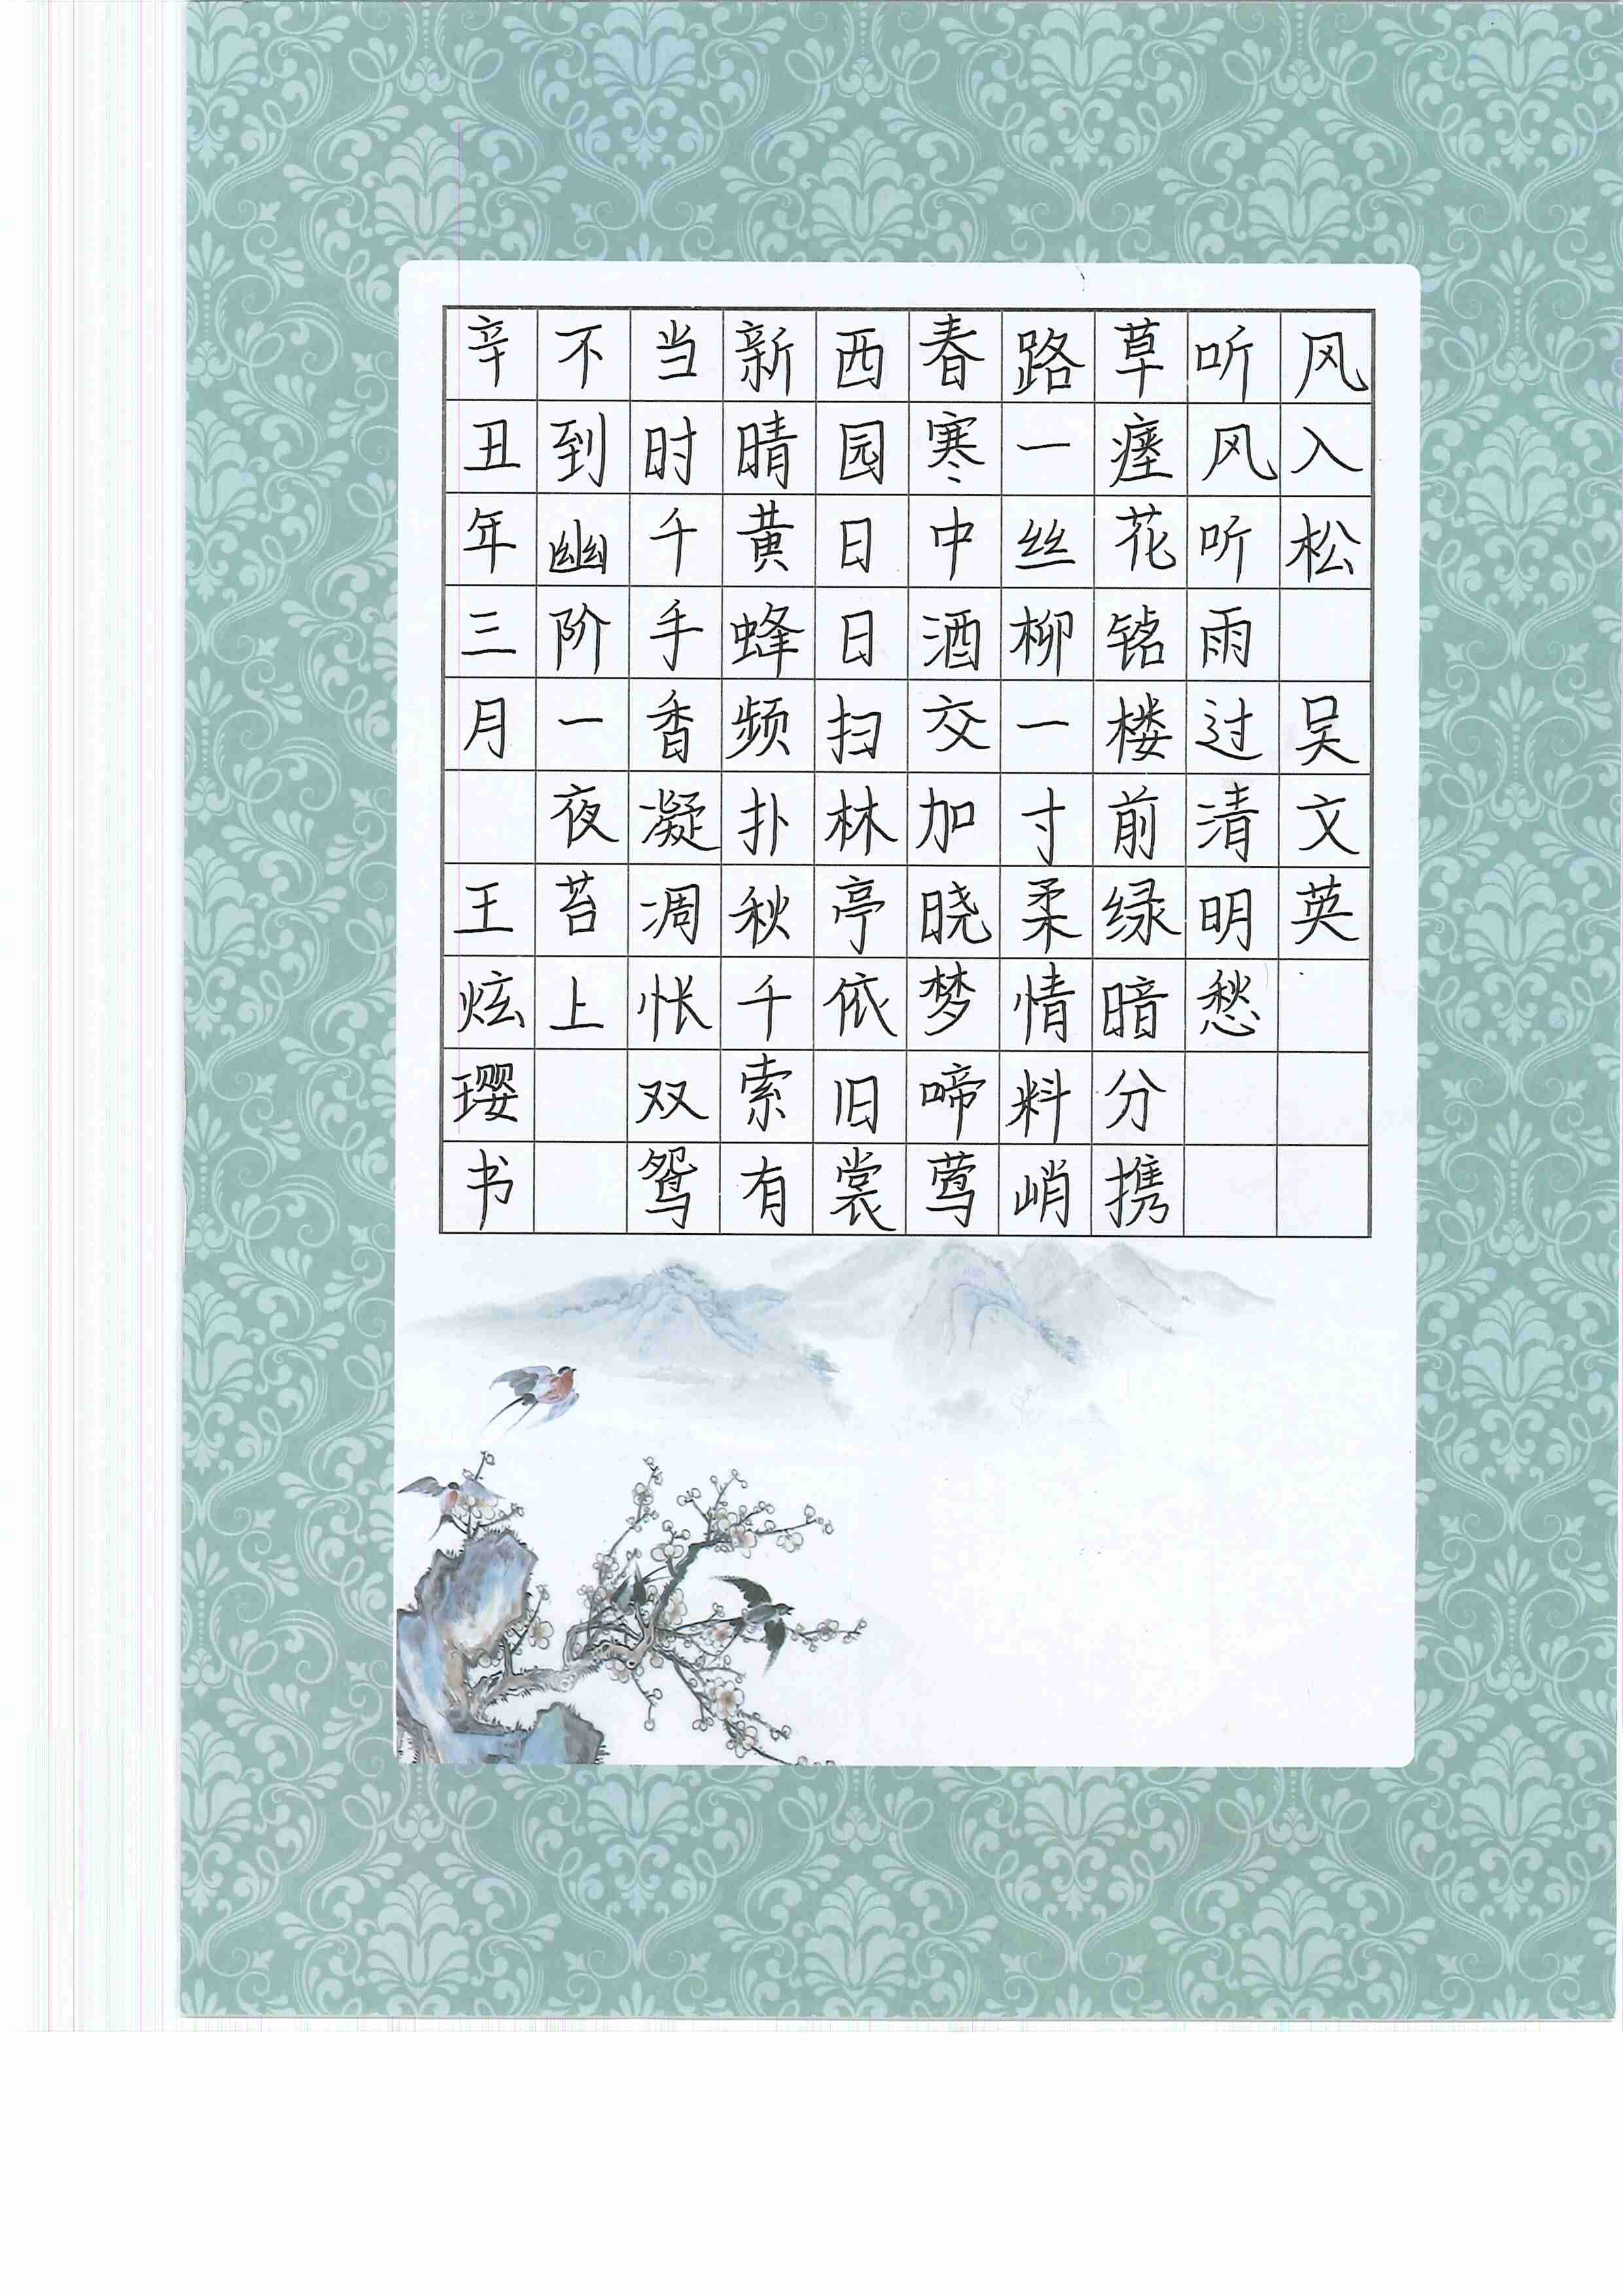 风入松 吴文英
听风听雨过清明愁
草瘗花铭楼前绿暗分携
路一丝柳一寸柔情料峭
春寒中酒交加晓梦啼莺
西园日日扫林亭依旧裳
新晴黄蜂频扑秋千索有
当时千手香凝凋怅双鸳
不到幽阶一夜苔上
辛丑年三月 王炫璎书